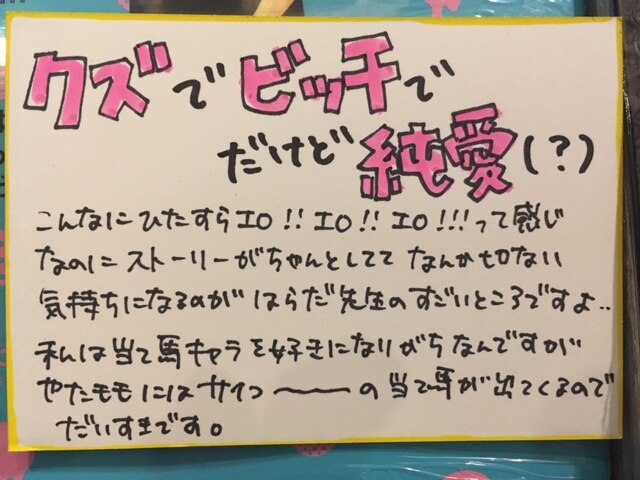 クズでビッチで
だけど純愛(?)
こんなにひたすらエロ!!エロ!!エロ!!!って感じ
なのにストーリーがちゃんとしてて なんか切ない
気持ちになるのが はらだ先生のすごいところですよ..
私は当て馬キャラを好きになりがちなんですが
やたモモにはサイコ〜の当て馬が出てくるので
だいすきです。